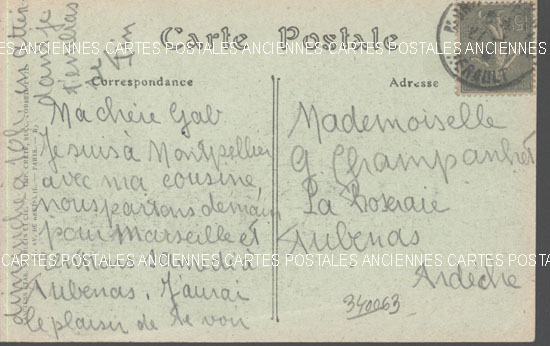 Carte Postale
Correspondance
Adresse
Ma chère Gab
Je suis à Montpellier
avec ma cousine,
nous partons demain
pour Marseille et
à
Aubenas. J'aurai
le plaisir de te voir
dimanche
dans je
Mademoiselle
G. Champanhet
La Roseraie
Aubenas
Ardèche
340063
HERAULT
CARTES POSTALES ANCIENNES CARTES POSTALES ANCIENNES CARTES POSTALES ANCIENNES
CARTES POSTALES ANCIENNES CARTES POSTALES ANCIENNES CARTES POSTALES ANCIENNES